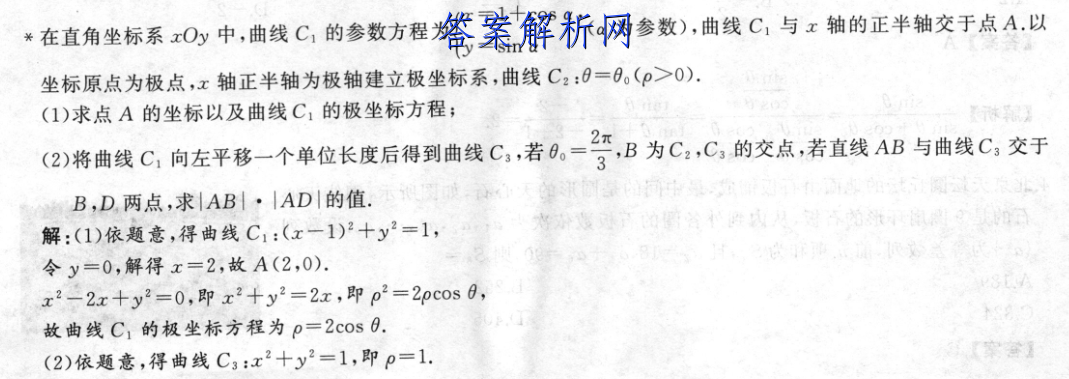 * 在直角坐标系 xOy 中,曲线 C₁ 的参数方程为{x=1+cos α, y=sin α (α为参数),曲线 C₁ 与 x 轴的正半轴交于点 A.以
答案解析网
坐标原点为极点,x 轴正半轴为极轴建立极坐标系,曲线 C₂:θ=θ₀(ρ>0).
(1)求点 A 的坐标以及曲线 C₁ 的极坐标方程;
(2)将曲线 C₁ 向左平移一个单位长度后得到曲线 C₃,若 θ₀=2π/3,B 为 C₂,C₃ 的交点,若直线 AB 与曲线 C₃ 交于
B,D 两点,求|AB|·|AD|的值.
解:(1)依题意,得曲线 C₁:(x-1)²+y²=1,
令 y=0,解得 x=2,故 A(2,0).
x²-2x+y²=0,即 x²+y²=2x,即 ρ²=2ρcos θ,
故曲线 C₁ 的极坐标方程为 ρ=2cos θ.
(2)依题意,得曲线 C₃:x²+y²=1,即 ρ=1.